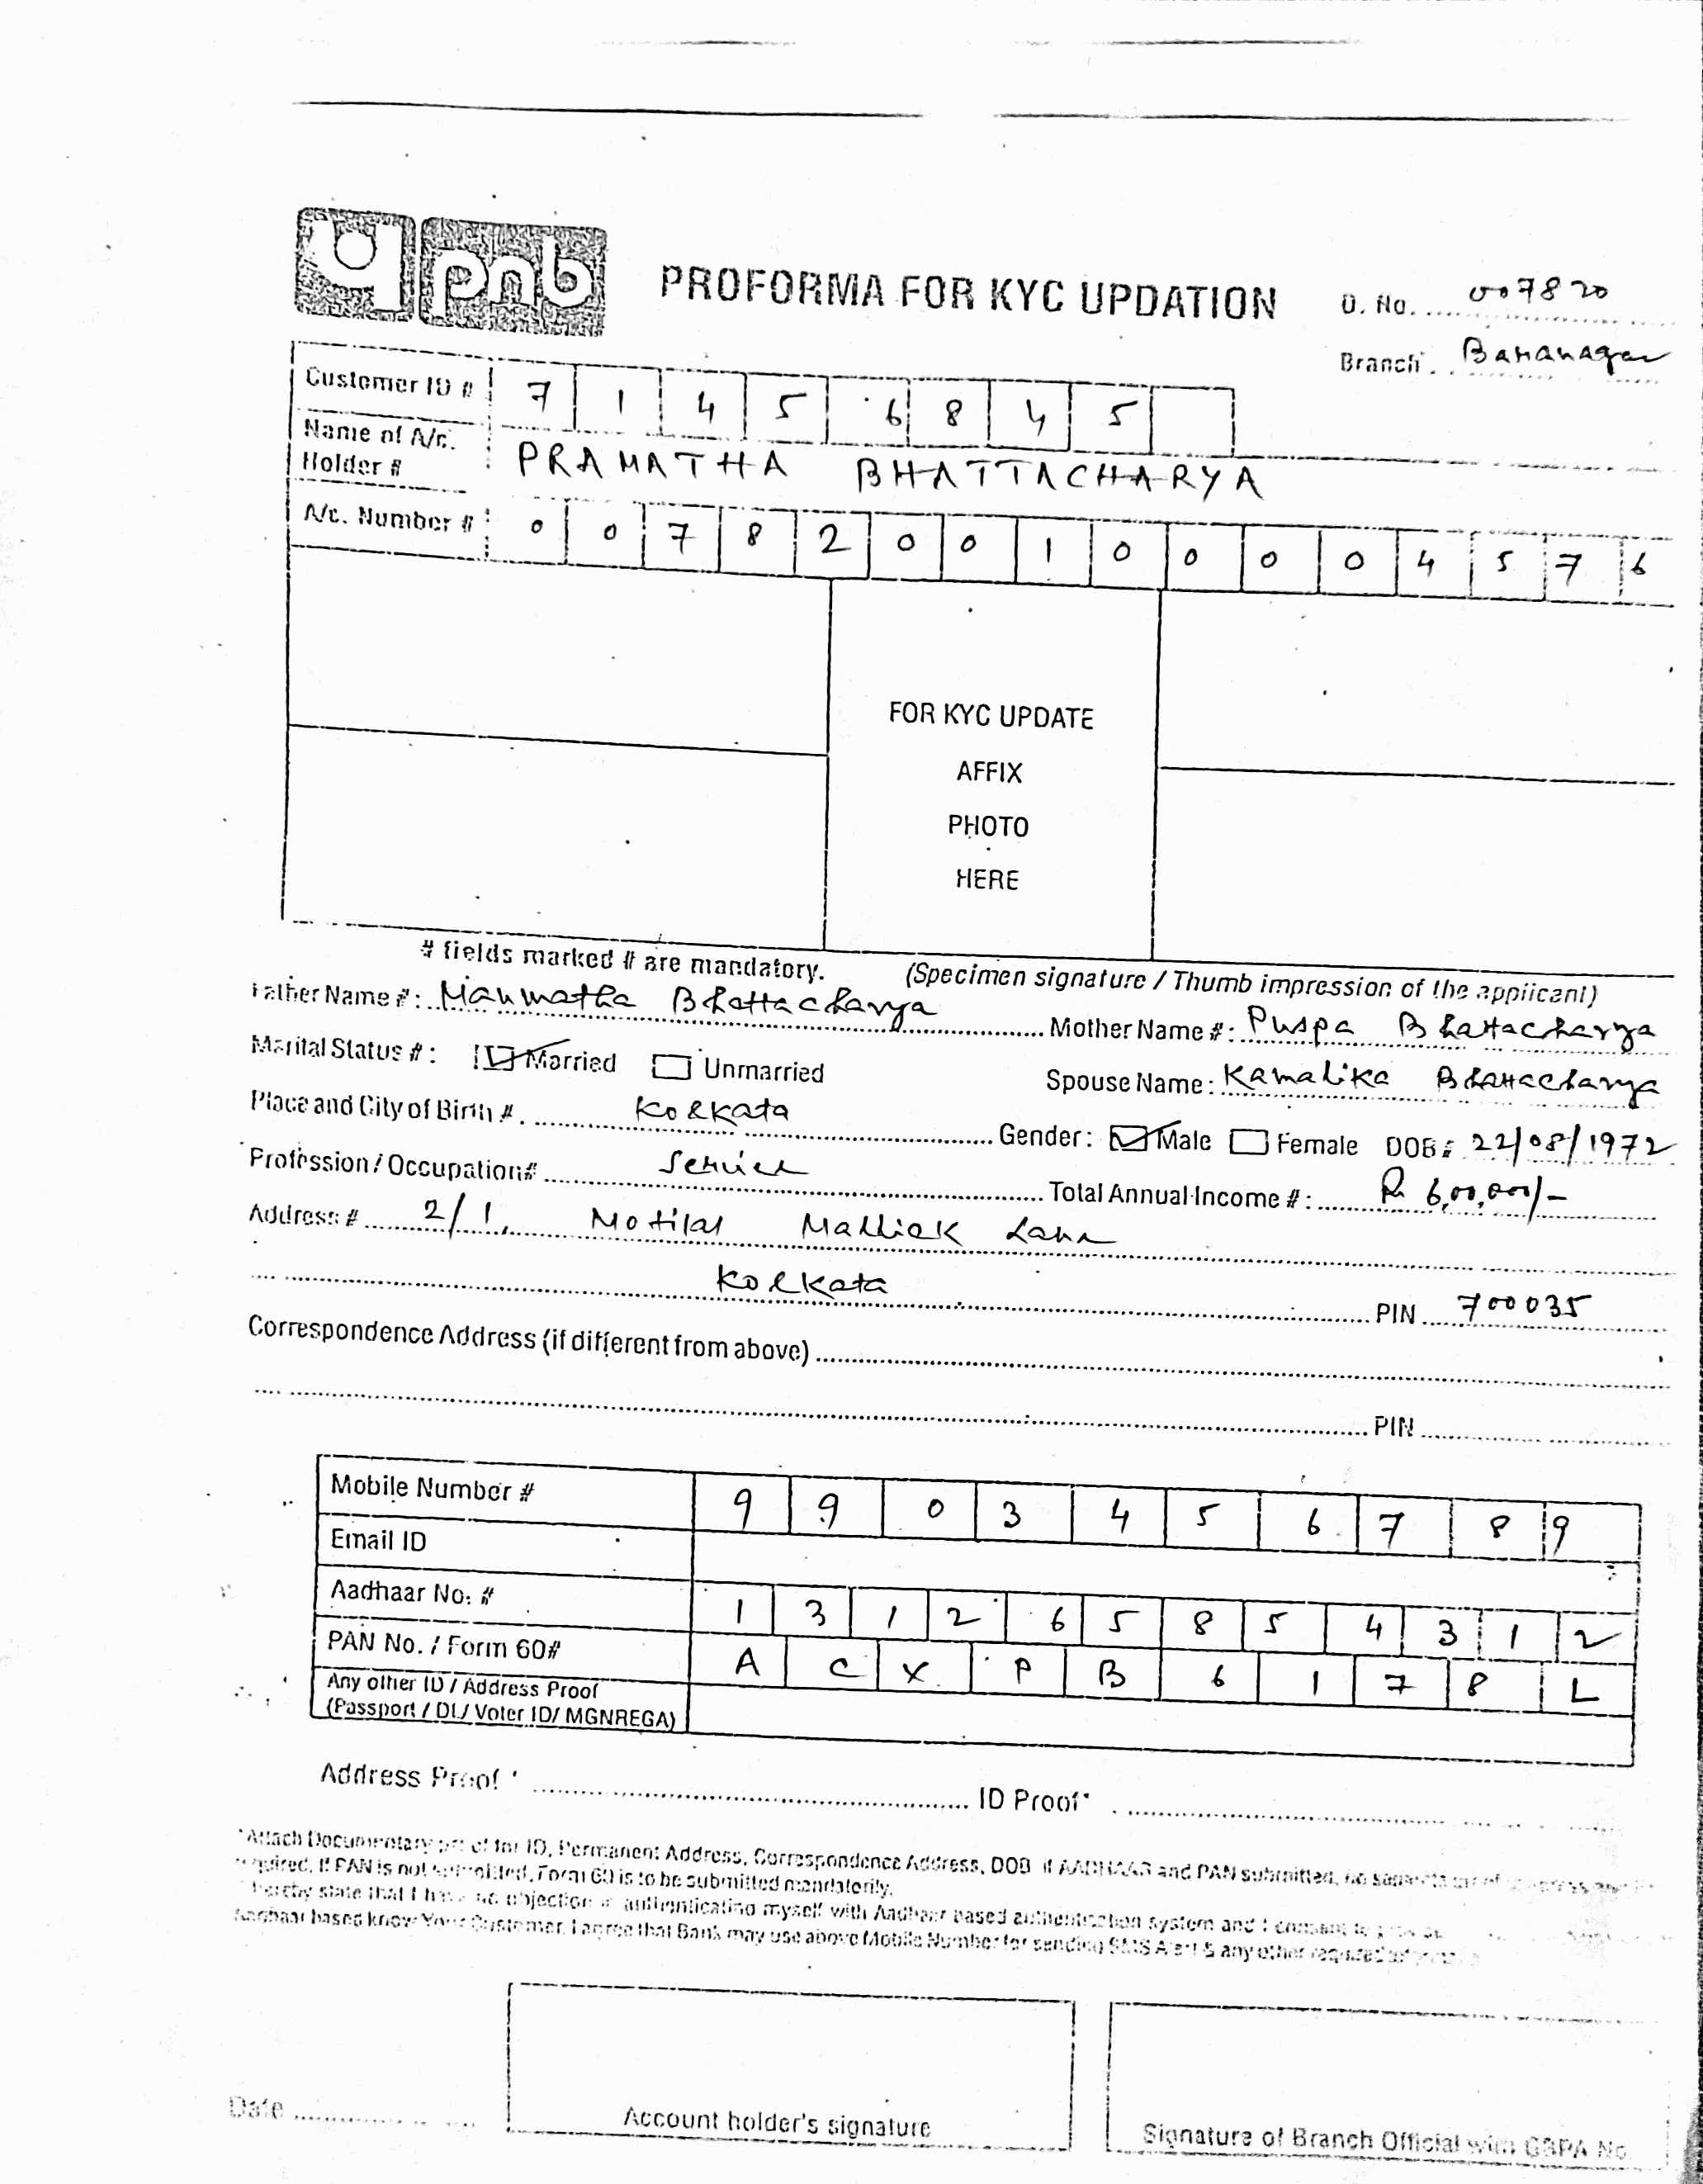 pnb
PROFORMA FOR KYC UPDATION
D. No. 007820
Branch Baranagar
Customer ID # 7 1 4 5 6 8 4 5
Name of A/c. Holder # PRAMATHA BHATTACHARYA
A/c. Number # 0 0 7 8 2 0 0 1 0 0 0 0 4 5 7 6
FOR KYC UPDATE
AFFIX
PHOTO
HERE
# fields marked # are mandatory. (Specimen signature / Thumb impression of the applicant)
Father Name #: Manmatha Bhattacharya Mother Name #: Puspa Bhattacharya
Marital Status #: Married Unmarried Spouse Name: Kamalika Bhattacharya
Place and City of Birth # Kolkata Gender: Male Female DOB # 22/08/1972
Profession / Occupation# Service Total Annual Income #: Rs 6,00,000/-
Address # 2/1, Motilal Mallick Lane
Kolkata PIN 700035
Correspondence Address (if different from above)
PIN
Mobile Number # 9 9 0 3 4 5 6 7 8 9
Email ID
Aadhaar No. # 1 3 1 2 6 5 8 5 4 3 1 2
PAN No. / Form 60# A C X P B 6 1 7 8 L
Any other ID / Address Proof
(Passport / DL/ Voter ID/ MGNREGA)
Address Proof * ID Proof*
*Attach Documentary for ID, Permanent Address, Correspondence Address, DOB if AADHAAR and PAN submitted, no
required. If PAN is not submitted, Form 60 is to be submitted mandatorily.
hereby state that I have no objection in authenticating myself with Aadhaar based authentication system and I consent to
Aadhaar based know Your Customer. I agree that Bank may use above Mobile Number for sending SMS Alert & any other required
Date
Account holder's signature
Signature of Branch Official with GBPA No.